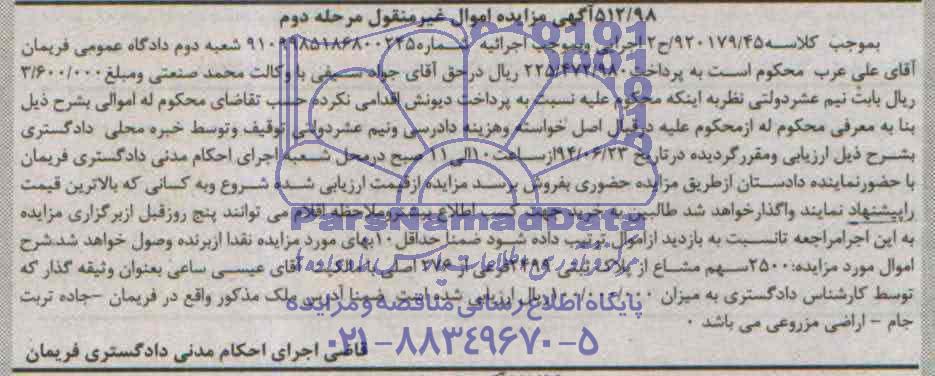 ۵۱۲/۹۸آگهی مزایده اموال غیرمنقول مرحله دوم
بموجب کلاسه۹۲۰۱۷۹/۴۵/ح۲ اجرایی وبموجب اجرائیه شماره۹۱۰۹۹۸۵۱۸۶۸۰۰۲۳۵ شعبه دوم دادگاه عمومی فریمان
آقای علی عرب محکوم است به پرداخت۲۲۵/۴۷۲/۹۸۰ ریال درحق آقای جواد سیفی با وکالت محمد صنعتی ومبلغ۳/۶۰۰/۰۰۰
ریال بابت نیم عشردولتی نظربه اینکه محکوم علیه نسبت به پرداخت دیونش اقدامی نکرده حسب تقاضای محکوم له اموالی بشرح ذیل
بنا به معرفی محکوم له ازمحکوم علیه درقبال اصل خواسته وهزینه دادرسی ونیم عشردولتی توقیف وتوسط خبره محلی دادگستری
بشرح ذیل ارزیابی ومقررگردیده درتاریخ ۹۴/۰۶/۲۳ ازساعت۱۰الی۱۱ صبح درمحل شعبه اجرای احکام مدنی دادگستری فریمان
با حضورنماینده دادستان ازطریق مزایده حضوری بفروش برسد مزایده ازقیمت ارزیابی شده شروع وبه کسانی که بالاترین قیمت
راپیشنهاد نمایند واگذارخواهد شد طالبین به خرید جهت کسب اطلاع بیشتروملاحظه اقلام می توانند پنج روزقبل ازبرگزاری مزایده
به این اجرامراجعه تانسبت به بازدید ازاموال ترتیب داده شود ضمنا حداقل۱۰بهای مورد مزایده نقدا ازبرنده وصول خواهد شد.شرح
اموال مورد مزایده:۲۵۰۰سهم مشاع از پلاک ثبتی فرعی از ۲۷۶ اصلی با مالکیت آقای عیسی ساعی بعنوان وثیقه گذار که
توسط کارشناس دادگستری به میزان ریال ارزیابی شده است ضمنا آدرس ملک مذکور واقع در فریمان -جاده تربت
جام - اراضی مزروعی می باشد .
قاضی اجرای احکام مدنی دادگستری فریمان
ParsNamadData
پایگاه اطلاع رسانی مناقصه و مزایده
۰۲۱-۸۸۳۴۹۶۷۰-۵